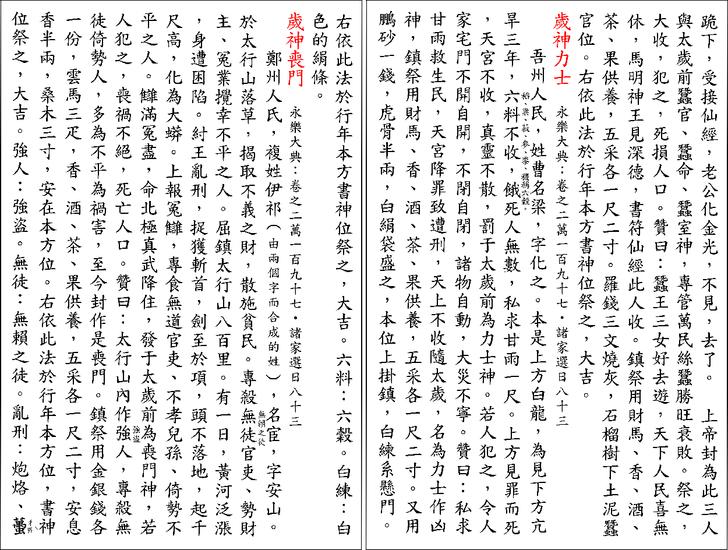 跪下，受接仙經，老公化金光，不見，去了。　上帝封為此三人
與太歲前蠶官、蠶命、蠶室神，專管萬民絲蠶勝旺衰敗。祭之，
大收，犯之，死損人口。贊曰：蠶王三女好去遊，天下人民喜無
休，馬明神王見深德，書符仙經此人收。鎮祭用財馬、香、酒、
茶、果供養，五采各一尺二寸。羅錢三文燒灰，石榴樹下土泥蠶
官位。右依此法於行年本方書神位祭之，大吉。
歲神力士　永樂大典：卷之二萬一百九十七·諸家選日八十三
吾州人民，姓曹名梁，字化之。本是上方白龍，為見下方亢
稻、黍、菽、麥、粱、稷稱六穀。
旱三年，六料不收，餓死人無數，私求甘雨一尺。上方見罪而死
，天宮不收，真靈不散，罰于太歲前為力士神。若人犯之，令人
家宅門不開自開，不閉自閉，諸物自動，大災不寧。贊曰：私求
甘雨救生民，天宮降罪致遭刑，天上不收隨太歲，名為力士作凶
神，鎮祭用財馬、香、酒、茶、果供養，五采各一尺二寸。又用
鵬砂一錢，虎骨半兩，白絹袋盛之，本位上掛鎮，白練系懸門。
右依此法於行年本方書神位祭之，大吉。六料：六穀。白練：白
色的絹條。
歲神喪門　永樂大典：卷之二萬一百九十七·諸家選日八十三
鄭州人氏，複姓伊祁（由兩個字而合成的姓），名宦，字安山。
無賴之徒
於太行山落草，揭取不義之財，散施貧民。專殺無徒官吏、勢財
主、冤業攪幸不平之人。屈鎮太行山八百里。有一日，黃河泛漲
，身遭困陷。紂王亂刑，捉獲斬首，劍至於項，頭不落地，起千
尺高，化為大蟒。上報冤讎，專食無道官吏、不孝兒孫、倚勢不
平之人。讎滿冤盡，命北極真武降住，發于太歲前為喪門神，若
強盜
人犯之，喪禍不絕，死亡人口。贊曰：太行山內作強人，專殺無
徒倚勢人，多為不平為禍害，至今封作是喪門。鎮祭用金銀錢各
一份，雲馬三疋，香、酒、茶、果供養，五采各一尺二寸，安息
香半兩，桑木三寸，安在本方位。右依此法於行年本方位，書神
位祭之，大吉。強人：強盜。無徒：無賴之徒。亂刑：炮烙、蠆